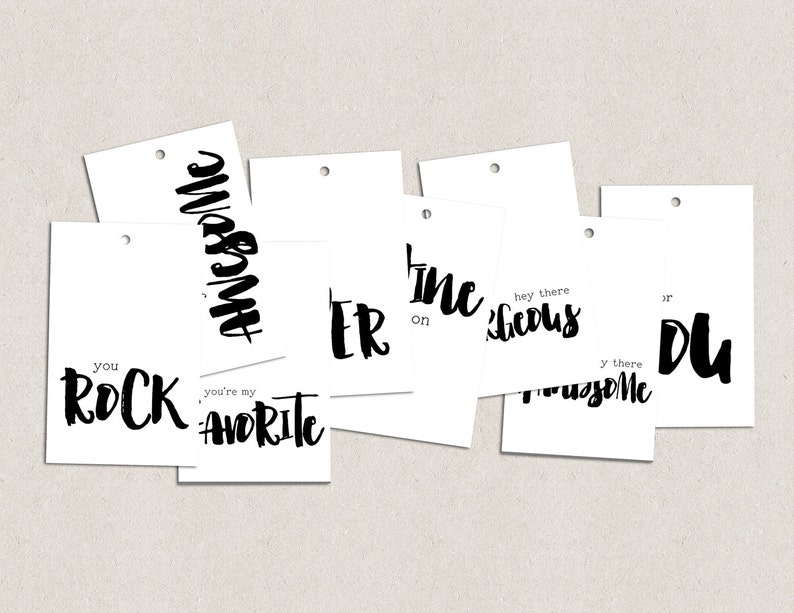 AWESOME
you
ROCK
you're my
FAVORITE
ER
INE
on
hey there
RGEOUS
y there
HANDSOME
or
OU